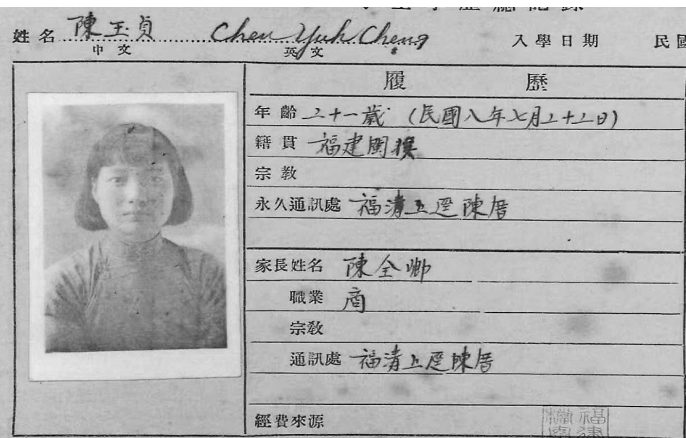 姓名 陳玉貞 Chen Yuh Cheng 入學日期 民國
中文 英文
履歷
年齡 二十一歲 (民國八年七月二十二日)
籍貫 福建閩猴
宗教
永久通訊處 福清上逕陳厝
家長姓名 陳全卿
職業 商
宗教
通訊處 福清上逕陳厝
經費來源